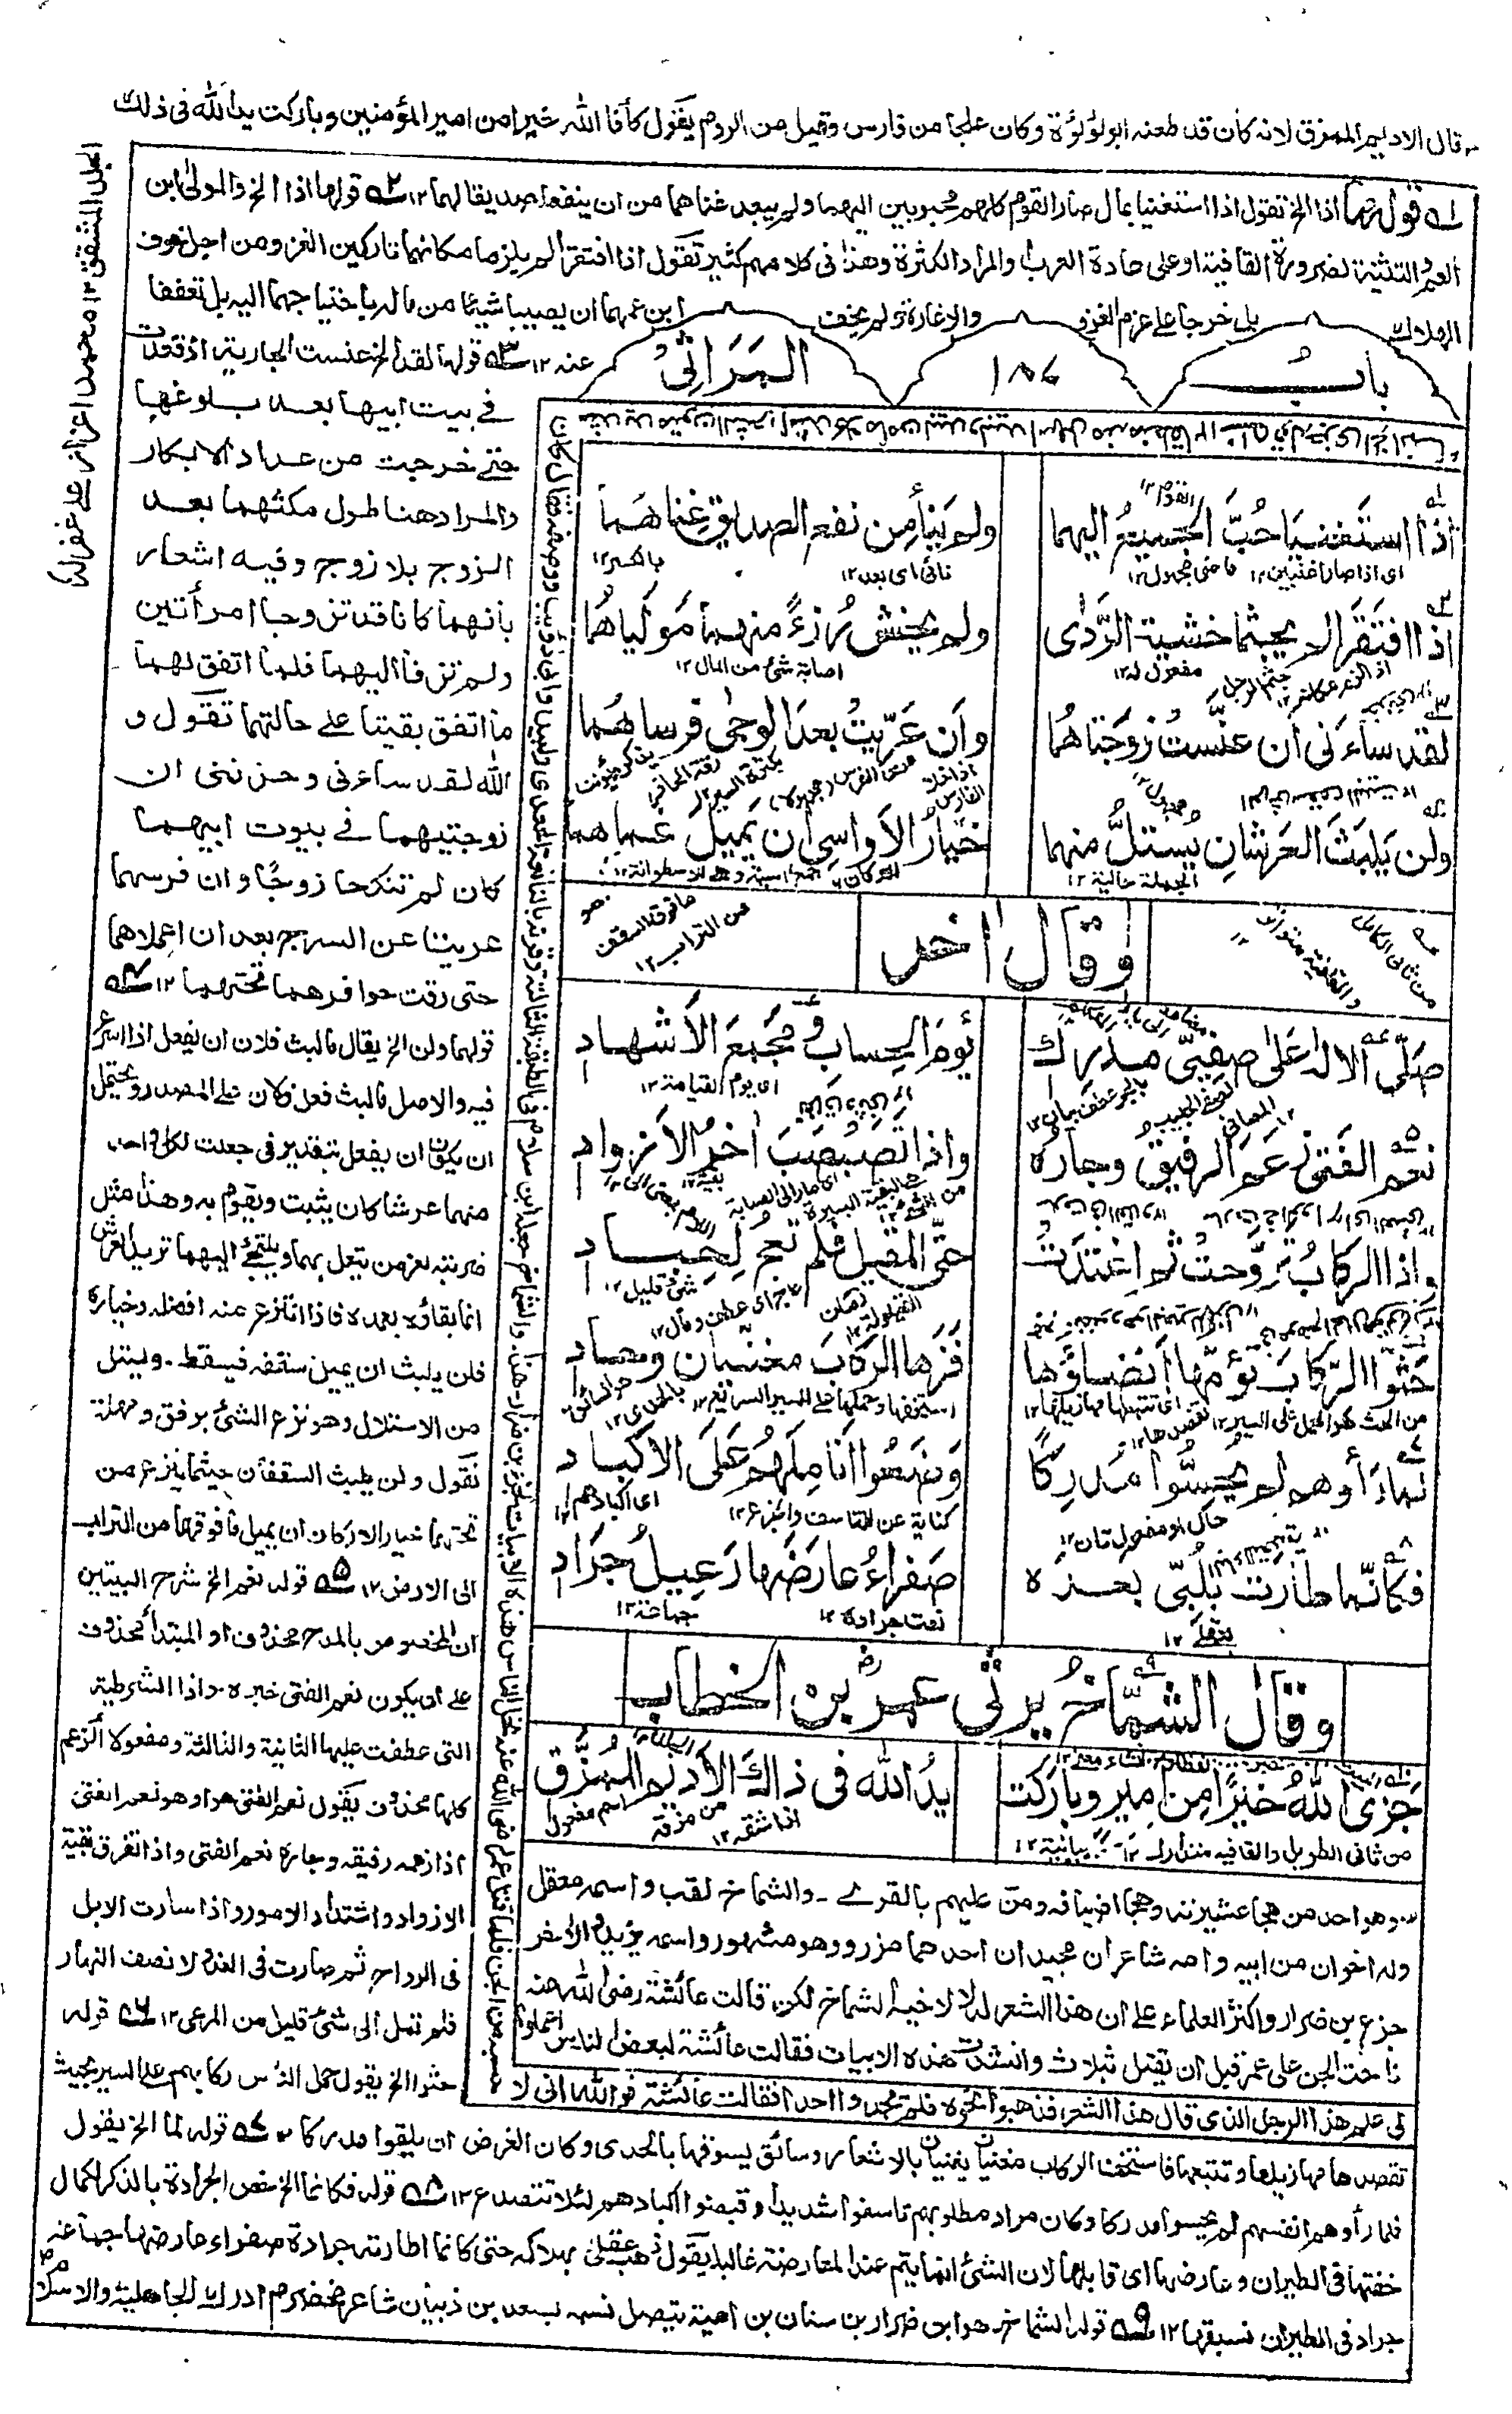 قال الاديم الممزق لانه كان قد طعنه ابو لؤلؤة وكان علجا من فارس وقيل من الروم يقول كأفا الله خيرا من امير المؤمنين وباركت يد الله فى ذلك
الجلد المشقق ١٢ محمد اعزاز على غفر له
قولهما اذا الخ تقول اذا استغنيا بمال صار القوم كلهم محبوبين اليهما ولم يبعد غناهما من ان ينفعا صديقا لهما ١٢ قولها اذا الخ والمولى ابن
العم والتثنية لضرورة القافية او على عادة العرب والمراد الكثرة وهذا فى كلامهم كثير تقول اذا افتقرا لم يلزما مكانهما تاركين الغزو من اجل خوف
الهلاك بل خرجا على عزم الغزو والاغارة ولم يخف ابن عمهما ان يصيبا شيئا من ماله باختياجهما اليه بل تعففا
باب
١٨٦
المراثى
عنه ١٢ قولها لقد الخ عنست الجارية اذ قعدت
فى بيت ابيها بعد بلوغها
حتى خرجت من عداد الابكار
والمراد هنا طول مكثهما بعد
الزوج بلا زوج وفيه اشعار
بانهما كانا قد تزوجا امرأتين
ولم تزفا اليهما فلما اتفق لهما
ما اتفق بقيتا على حالتهما تقول و
الله لقد ساءنى وحزننى ان
زوجتيهما فى بيوت ابيهما
كان لم تنكحا زوجا وان فرسهما
عريتا عن السرج بعد ان اعملاهما
حتى رقت حوافرهما تحتهما ١٢
قولهما ولن الخ يقال ما لبث فلان ان يفعل اذا اسرع
فيه والاصل ما لبث فعل فلان على المصدر ويحتمل
ان يكون ان يفعل بتقدير فى جعلت لكل واحد
منهما عرشا كان يثبت ويقوم به وهذا مثل
ضربته لعز من يتعل بهما ويلتجئ اليهما تريد العرش
انما بقاؤه بعمده فاذا انتزع عنه افضله وخياره
فلن يلبث ان يميل سقفه فيسقط۔ ويستل
من الاستلال وهو نزع الشئ برفق و مهلة
تقول ولن يلبث السقفان حيثما ينزع من
تحتهما خيار الاركان ان يميل ما فوقهما من التراب
الى الارض ١٢ قوله نعم الخ شرح البيتين
ان المخصوص بالمدح محذوف او المبتدأ محذوف
على ان يكون نعم الفتى خبره۔ واذا الشرطية
التى عطفت عليها الثانية والثالثة ومفعولا ألزعم
كلها محذوف يقول نعم الفتى هو او هو نعم الفتى
اذا زعمه رفيقه وجاره نعم الفتى واذا تفرق بقية
الازواد واشتداد الامور واذا سارت الابل
فى الرواح ثم صارت فى الغدو لا نصف النهار
فلم تمل الى شئ قليل من المرعى ١٢ قوله
حثوا الخ يقول حمل الناس ركابهم على السير بحيث
اذا استغنيا حُبَّ الجميعُ اليهما ولم ينأ من نفع الصديق غناهما
اى اذا صارا غنيين ١٢ ماضى مجهول ١٢ نائى اى بعد ١٢ بالكسر ١٢
اذا افتقرا لم يجثما خشية الرَّدٰى ولم يخش رُزءً منهما مَوْلياهُما
مفعول له ١٢ اصابة شئ من المال ١٢
لقد ساءنى أن عنّست زوجتاهُما وأن عُرِّيتْ بعد الوجٰى فرساهُما
ولن يلبث العرشان يُستلُّ منهما خيارُ الاواسى ان يميل غماهما
الجملة حالية ١٢
وقال اٰخر
من ثانى الكامل والقافية متواتر ١٢
هو ما فوق السقف من التراب ١٢
صلّى الاله على صفيّى مدرك يوم الحساب ومجمع الأشهاد
بالجر عطف بيان ١٢ اى يوم القيامة ١٢
نعم الفتى زعم الرفيق وجاره واذا تصبصب اٰخر الازواد
واذا الركاب تروّحت ثم اغتدت حتى المقيل فلم تعج لحياد
شئ قليل ١٢
حثّوا الركاب تؤمّها أنضاؤها فزها الركاب مغنّيان وحاد
من الحث هو الحمل على السير ١٢ استخفها وحملها على السير السريع ١٢
لما رأوهم لم يحسّوا مدركًا وضعوا اناملهم على الاكباد
حال او مفعول ثان ١٢ كناية عن التاسف والجزع ١٢ اى اكبادهم ١٢
فكانما طارت بلبّى بعده صفراء عارضها رعيل جراد
بعقلى ١٢ نعت جرادة ١٢ جماعة ١٢
وقال الشمّاخ يرثى عمر بن الخطاب رض
جزى اللهُ خيرًا من امير وباركت يدُ الله فى ذاك الأديم الممزّق
من ثانى الطويل والقافيه متدارك ١٢ بيانية ١٢ من مزقه اذا شقه ١٢ اسم مفعول
وهو احد من هجا عشيرته وهجا اضيافه ومنّ عليهم بالقرى۔ والشماخ لقب واسمه معقل
وله اخوان من ابيه وامه شاعران مجيدان احدهما مزرد وهو مشهور واسمه يزيد والاخر
جزء بن ضرار واكثر العلماء على ان هذا الشعر له لا لاخيه الشماخ لكن قالت عائشة رضى الله عنه
ناحت الجن على عمر قبل ان يقتل بثلاث وانشدت هذه الابيات فقالت عائشة لبعض الناس اعلموا
لى علم هذا الرجل الذى قال هذا الشعر فذهبوا نحوه فلم يجدوا احدا فقالت عائشة فوالله انى لا
تقصدها مهازيلها وتتبعها فاستخفتا الركاب مغنيان يغنيان بالاشعار وسائق يسوقها بالحدى وكان الغرض ان يلقوا مدركا ١٢ قوله لما الخ يقول
فلما رأوهم انفسهم لم يحسوا مدركا وكان مراد مطلوبهم تاسفوا شديدا وقبضوا اكبادهم لئلا تتصدع ١٢ قوله فكانما الخ خص الجرادة بالذكر لكمال
خفتها فى الطيران وعارضها اى قابلها لان الشئ انما يتم عند المعارضة غالبا يقول ذهب عقلى بهلاكه حتى كانما اطارته جرادة صفراء عارضها جماعة
جراد فى الطيران فسبقها ١٢ قوله الشماخ هو ابن ضرار بن سنان بن امية يتصل نسبه بسعد بن ذبيان شاعر مخضرم ادرك الجاهلية والاسلام